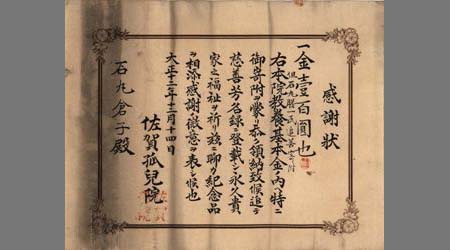 感謝状
一金壹百圓也
右本院教養基本金ノ内ヘ特ニ
御寄附ヲ蒙リ忝ク領納致候追テ
慈善芳名録ニ登載シ永久貴
家之福祉ヲ祈リ茲ニ聊カ紀念品
ヲ相添ヘ感謝ノ微意ヲ表シ候也
大正十三年十二月十四日
佐賀孤兒院
石丸倉子殿